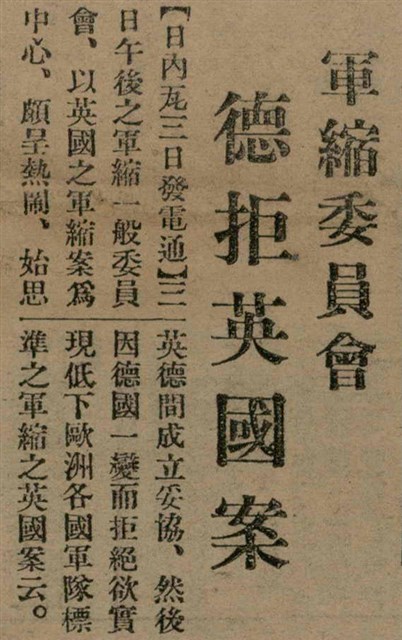 軍縮委員會
德拒英國案
【日內瓦三日發電通】三
日午後之軍縮一般委員
會、以英國之軍縮案爲
中心、頗呈熱鬧、始思
英德間成立妥協、然後
因德國一變而拒絕欲實
現低下歐洲各國軍隊標
準之軍縮之英國案云。